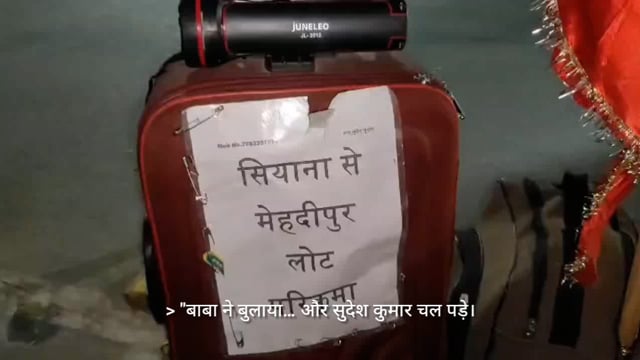 JUNELEO
JL-3015
Mob No.
सियाना से
मेहदीपुर
लोट
परिक्रमा
> "बाबा ने बुलाया... और सुदेश कुमार चल पड़े।